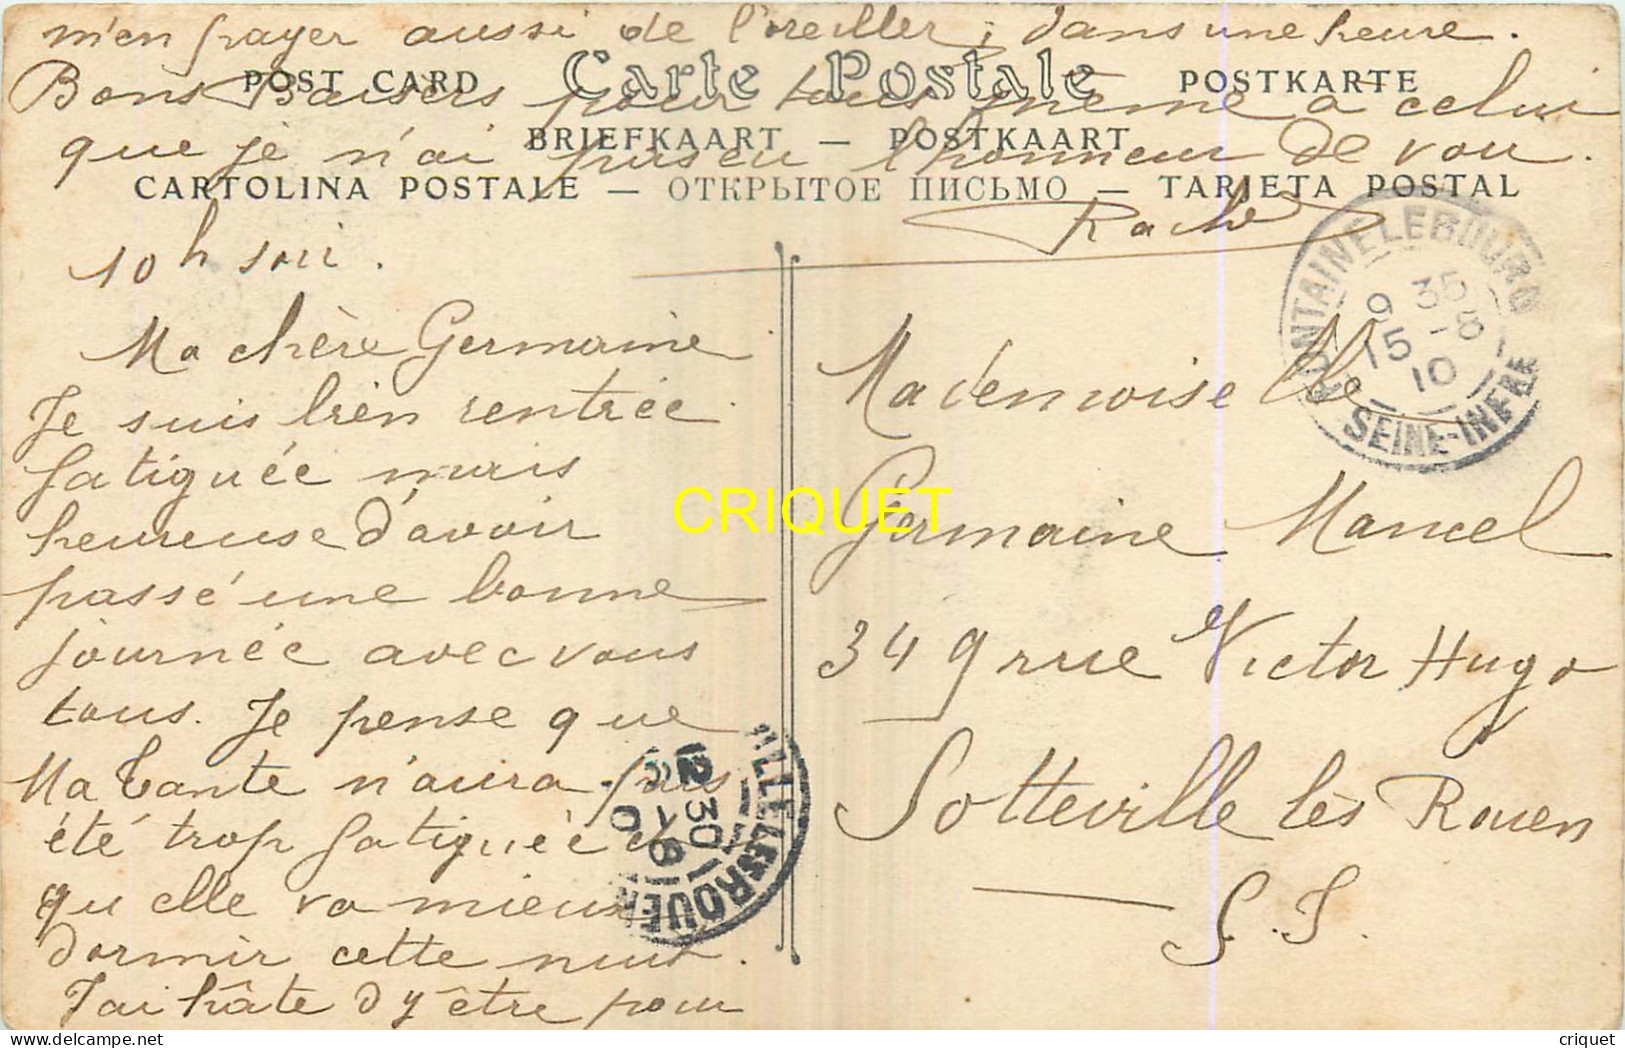 m'en payer aussi de l'oreiller, dans une heure.
Bons Baisers pour tous même à celui
que je n'ai pas eu l'honneur de vou.
Rach
POST CARD Carte Postale POSTKARTE
BRIEFKAART — POSTKAART
CARTOLINA POSTALE — ОТКРЫТОЕ ПИСЬМО — TARJETA POSTAL
10h soir.
Ma chère Germaine
Je suis bien rentrée
fatiguée mais
heureuse d'avoir
passé une bonne
journée avec vous
tous. Je pense que
Ma Tante n'aura pas
été trop fatiguée et
qu'elle va mieux
dormir cette nuit.
J'ai hâte d'y être pour
Mademoiselle
Germaine Mancel
349 rue Victor Hugo
Sotteville lès Rouen
S. I.
FONTAINE LE BOURG
9 35
15 -8
10
SEINE-INFRE
12 30
LLE LES ROUEN
CRIQUET
criquet